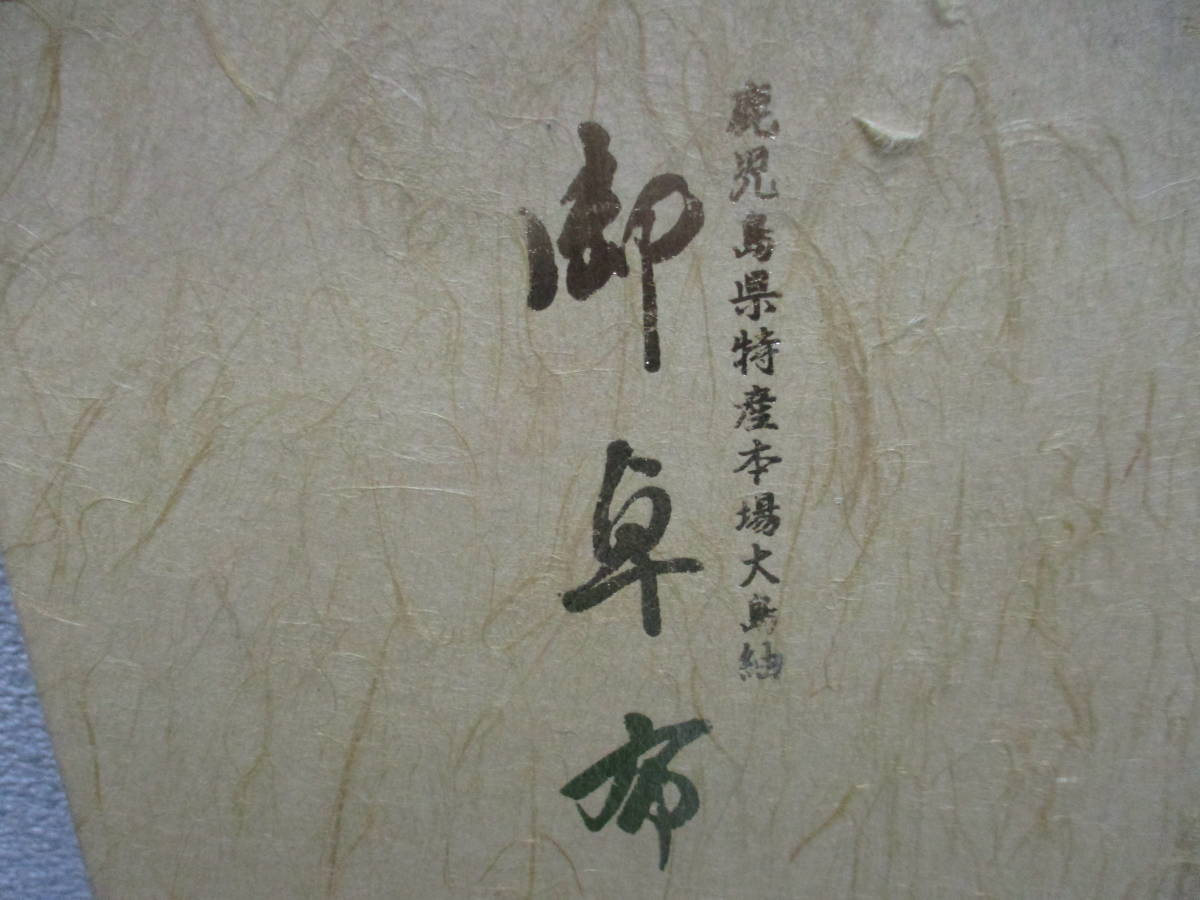 鹿児島県特産本場大島紬
御卓布